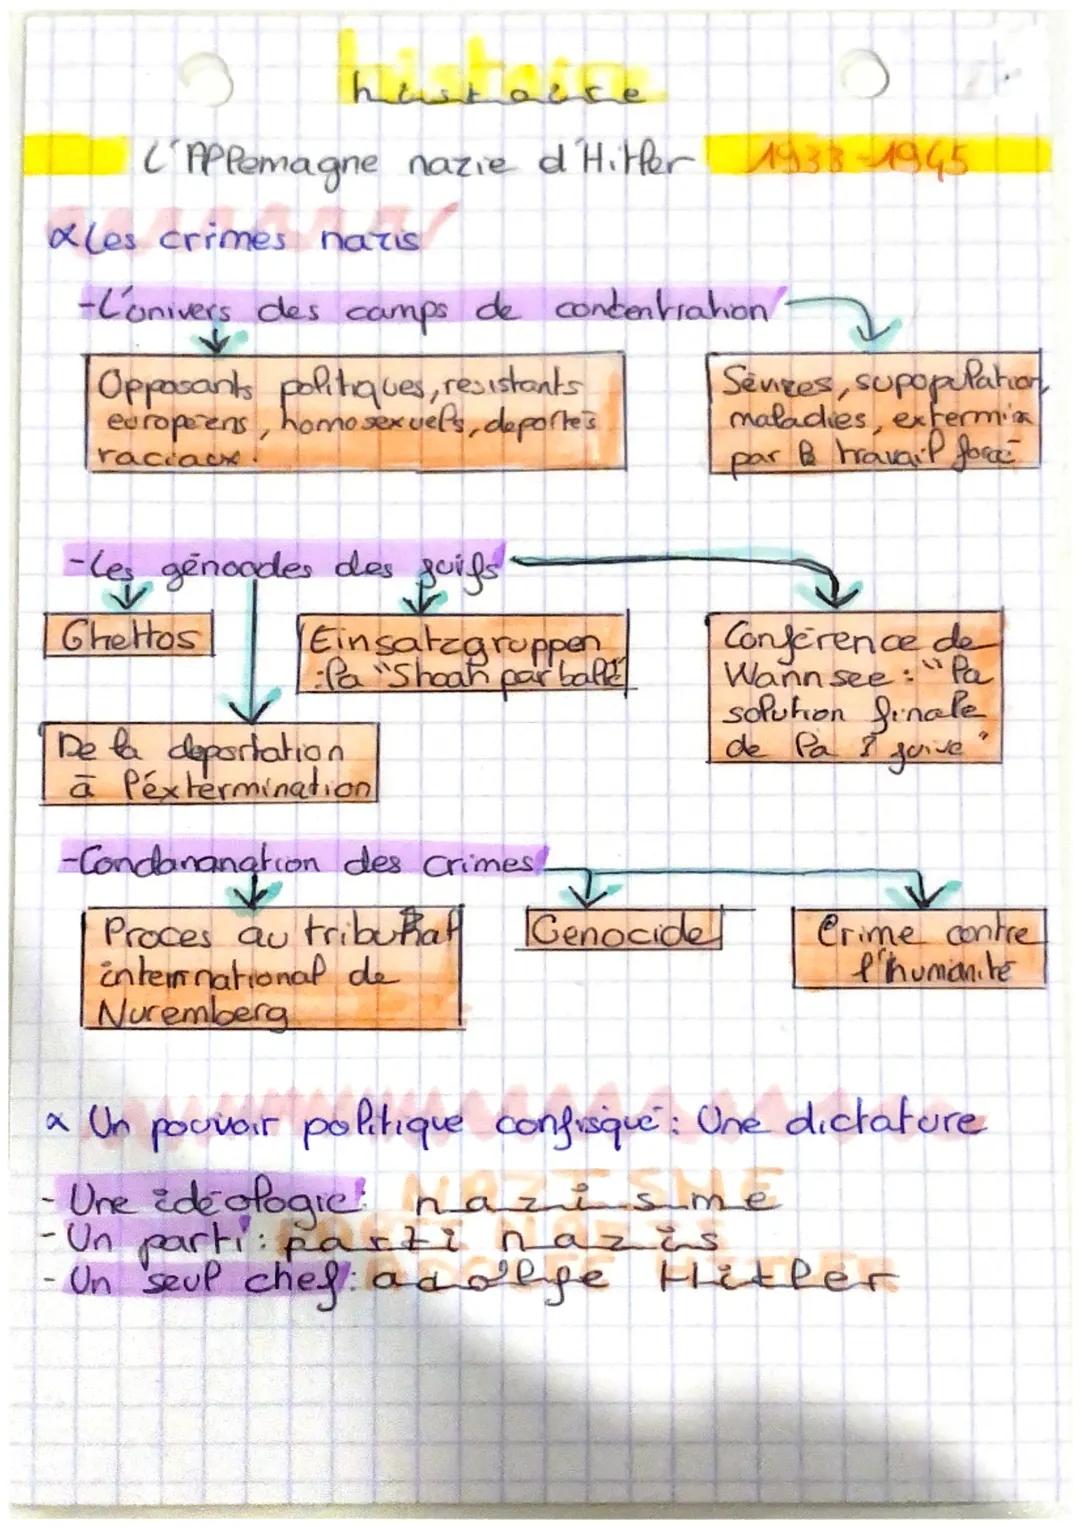 histoire
L'Allemagne nazie d'Hitler 1933-1945
α Les crimes nazis
-L'univers des camps de concentration
Opposants politiques, resistants
européens, homosexuels, deportés
raciaux.
Sévices, supopulation,
maladies, extermin
par le travail forcé
-Les génocides des juifs
Ghettos
Einsatzgruppen
: la "Shoah par balle"
Conférence de
Wannsee : "la
solution finale
de la ? juive"
De la deportation
à l'éxtermination
-Condanangtion des crimes
Proces au tribunal
international de
Nuremberg
Genocide
Crime contre
l'humanité
α Un pouvoir politique confisqué : Une dictature
- Une idéologie : nazisme
NAZISME
- Un parti : parti nazis
PARTI NAZIS
- Un seul chef : adolfe Hitler
ADOLFE HITLER